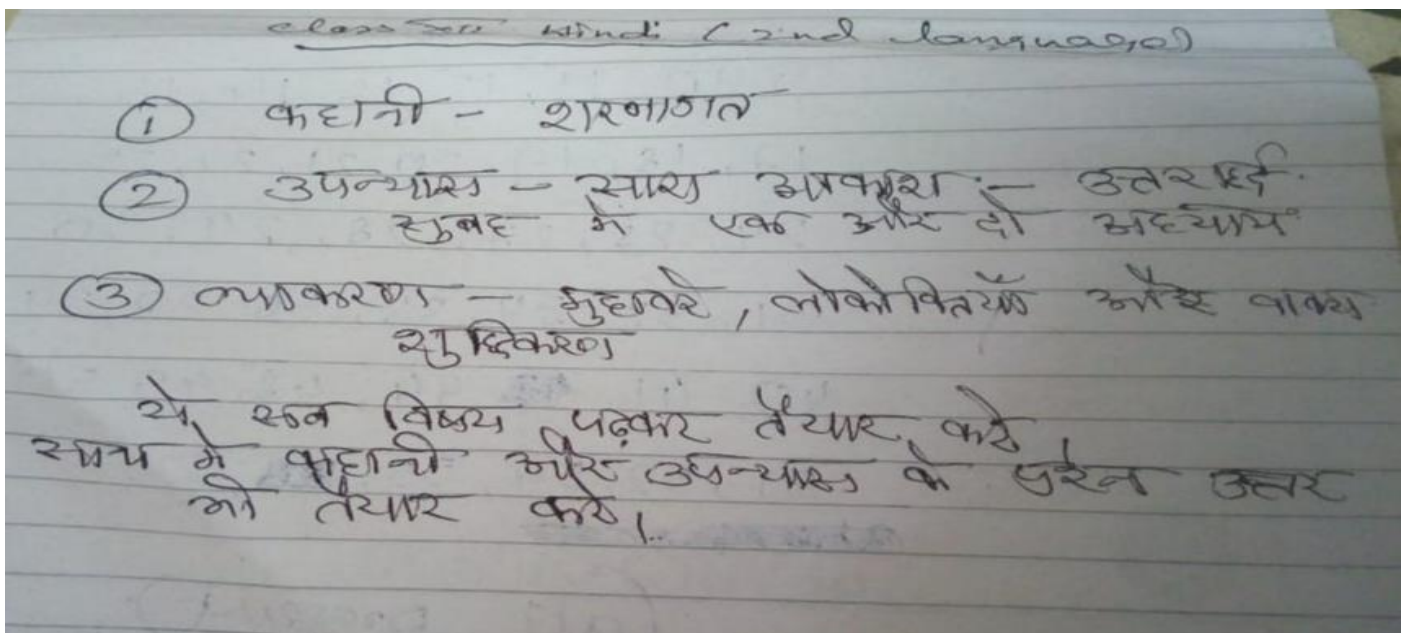 class Hindi (2nd language)
① कहानी - शरणागत
② उपन्यास - सारा आकाश :- उत्तरार्द्ध.
सुबह में एक और दो अध्याय
③ व्याकरण - मुहावरे, लोकोक्तियाँ और वाक्य
शुद्धिकरण
ये सब विषय पढ़कर तैयार करे।
साथ में कहानी और उपन्यास के प्रश्न उत्तर
भी तैयार करे।